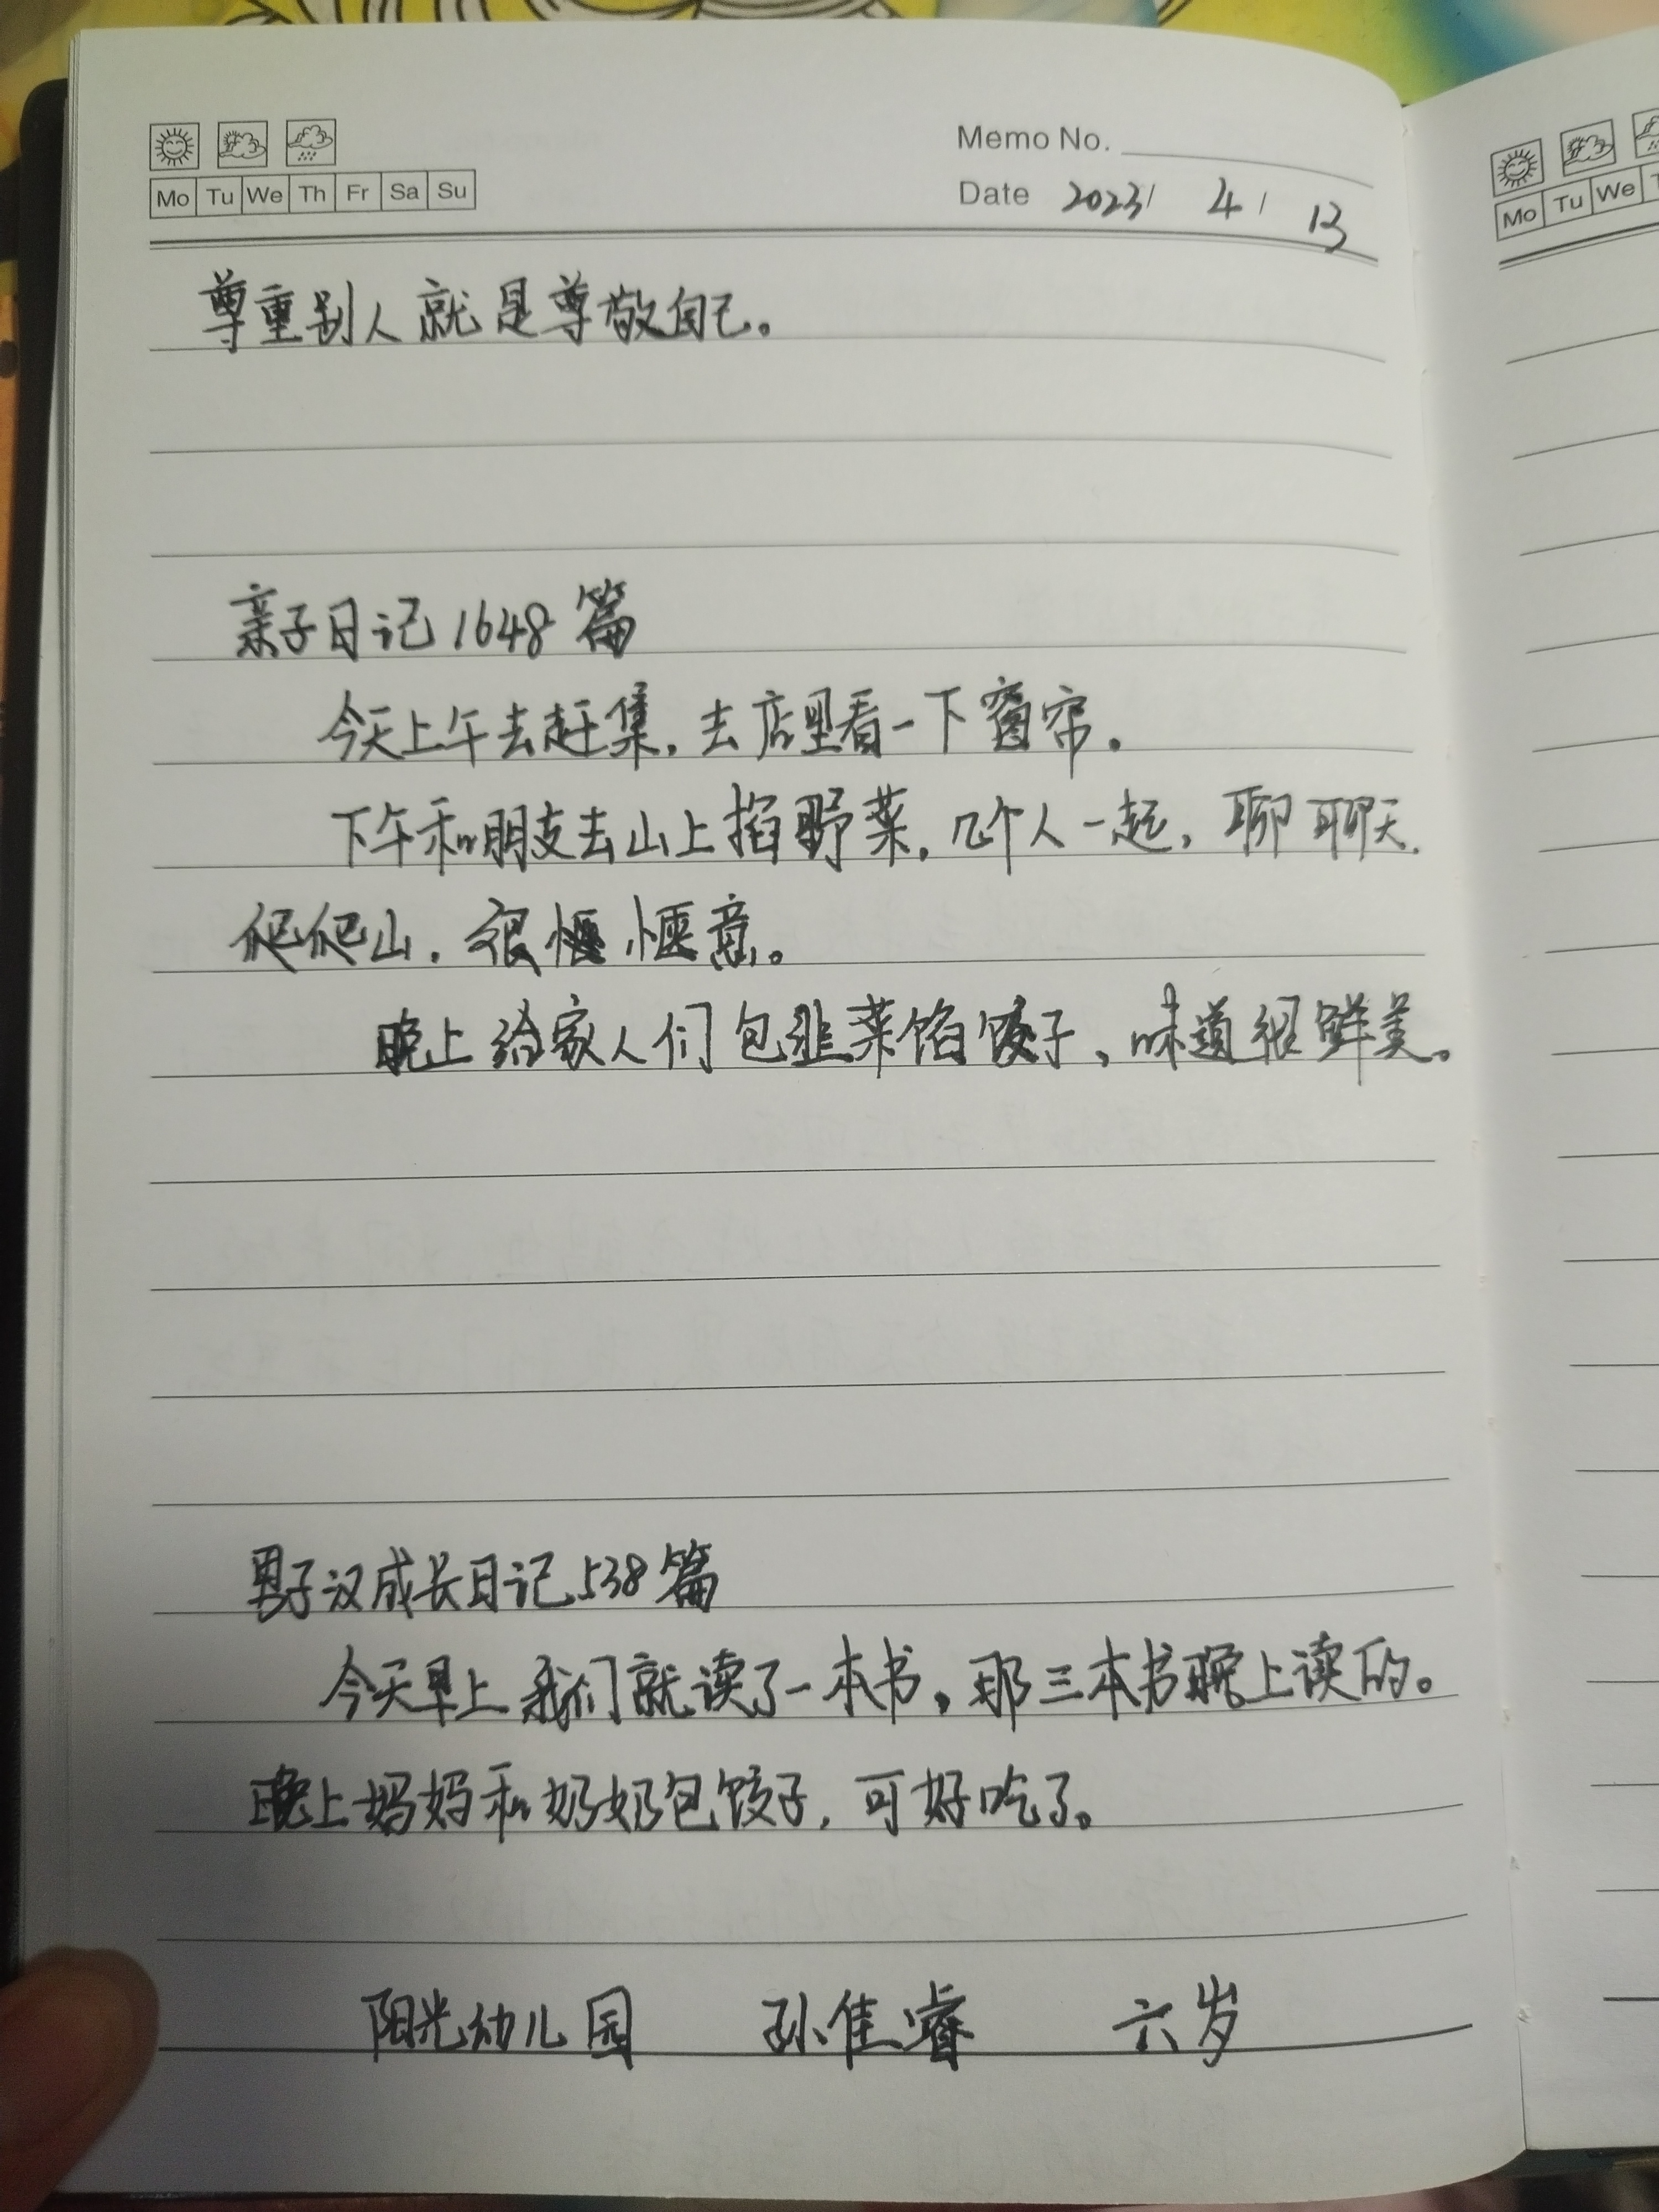 Memo No.
Mo Tu We Th Fr Sa Su
Date 2023/ 4/ 13
尊重别人就是尊敬自己。
亲子日记1648篇
今天上午去赶集,去店里看一下窗帘。
下午和朋友去山上掐野菜,几个人一起,聊聊天.
爬爬山,很惬惬意。
晚上给家人们包韭菜馅饺子、味道很鲜美。
男子汉成长日记538篇
今天早上我们就读了一本书,那三本书晚上读的。
晚上妈妈和奶奶包饺子,可好吃了。
阳光幼儿园 孙佳睿 六岁
Mo Tu We